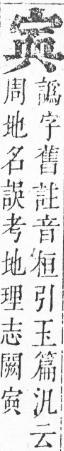 譌字舊註音桓引玉篇汎云
周地名誤考地理志闕寅